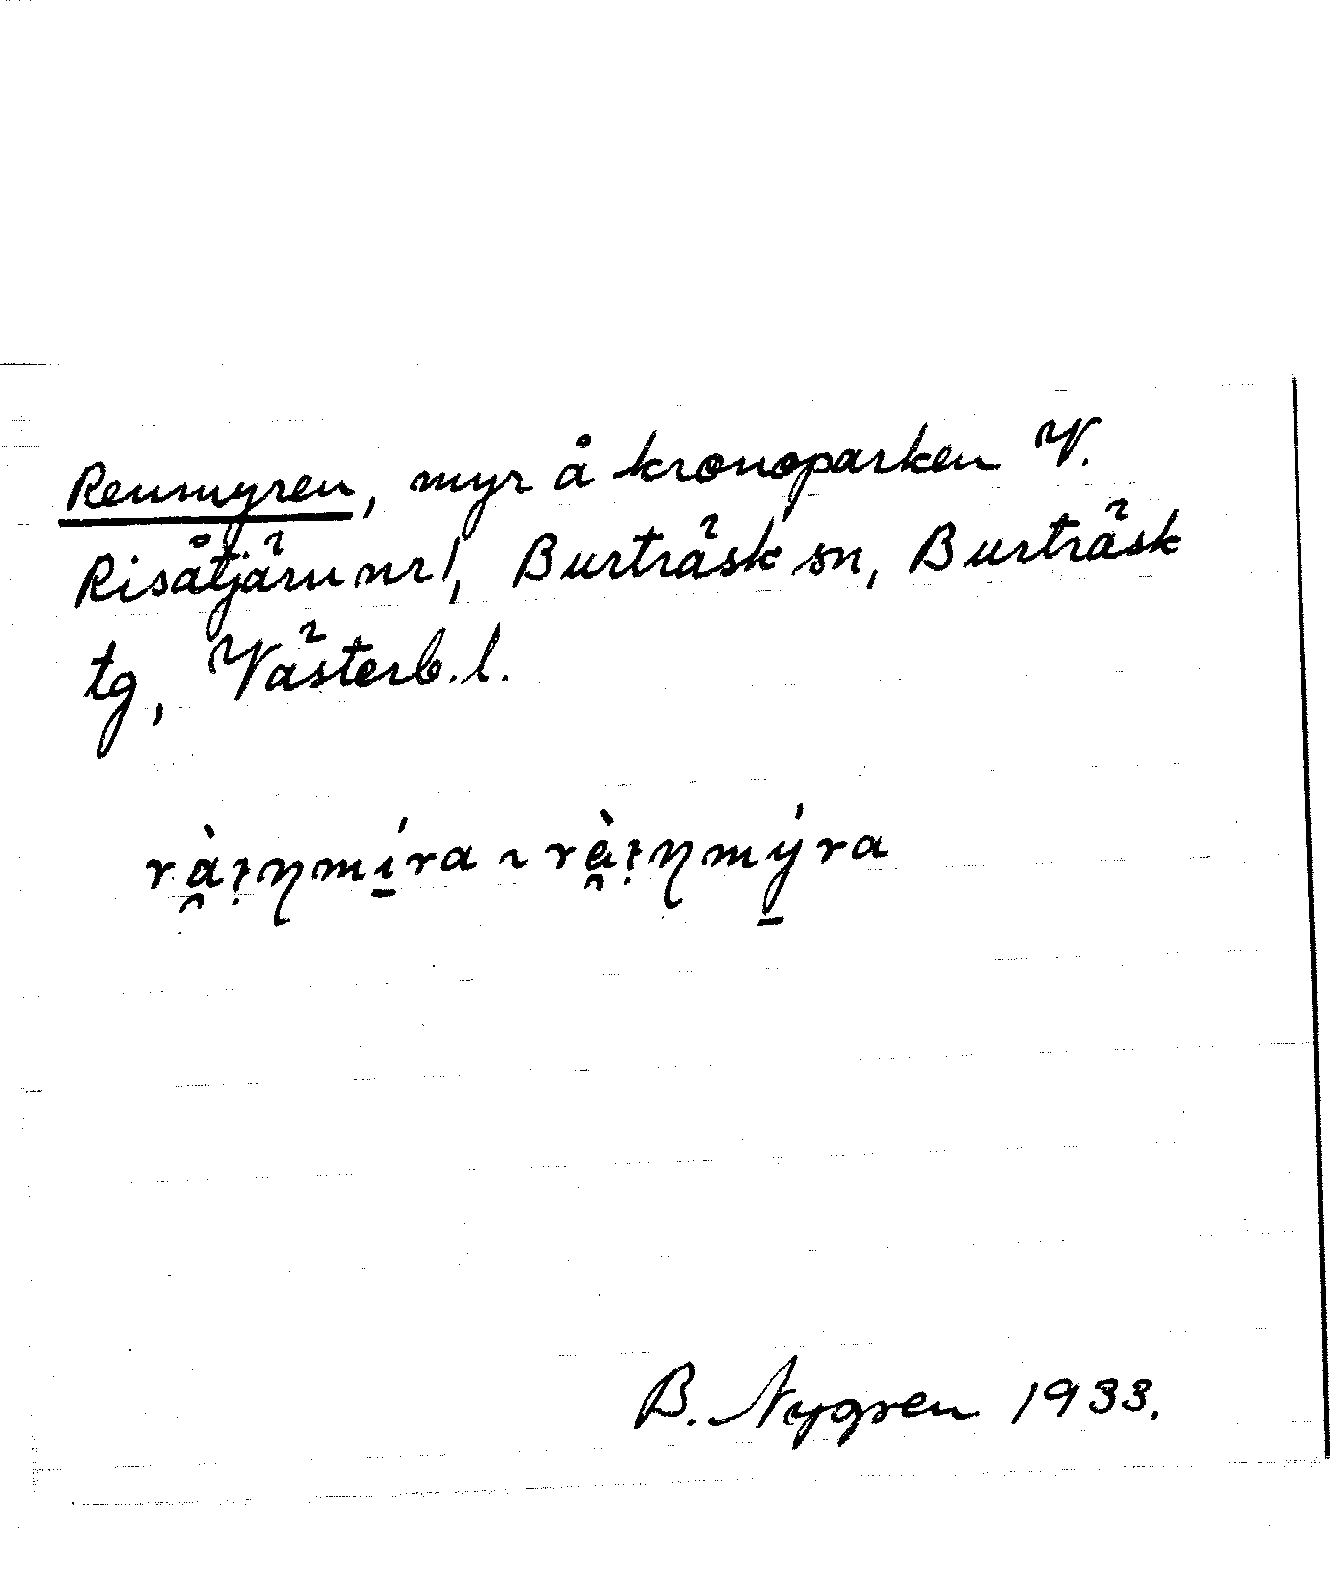 Renmyren, myr å kronoparken V.
Risåtjärn nr 1, Burträsk sn, Burträsk
tg, Västerb.l.
B. Nygren 1933.